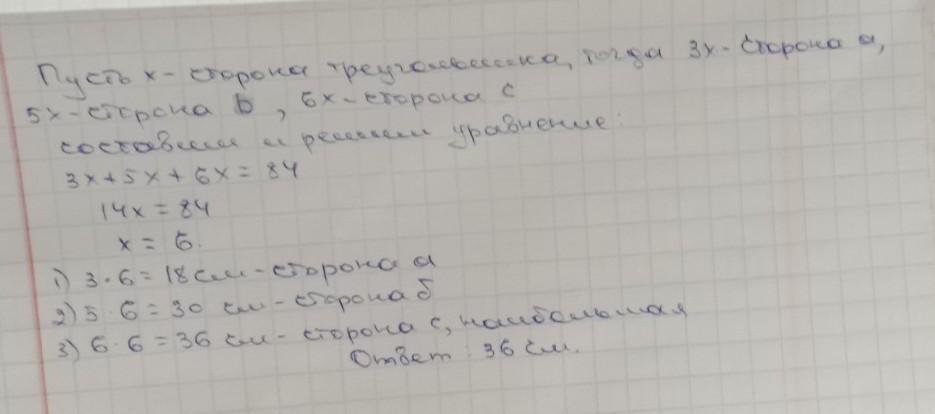 Пусть x - сторона треугольника, тогда 3x - сторона a,
5x - сторона b, 6x - сторона c
составим и решим уравнение:
3x + 5x + 6x = 84
14x = 84
x = 6.
1) 3 · 6 = 18 см - сторона a
2) 5 · 6 = 30 см - сторона б
3) 6 · 6 = 36 см - сторона c, наибольшая
Ответ: 36 см.